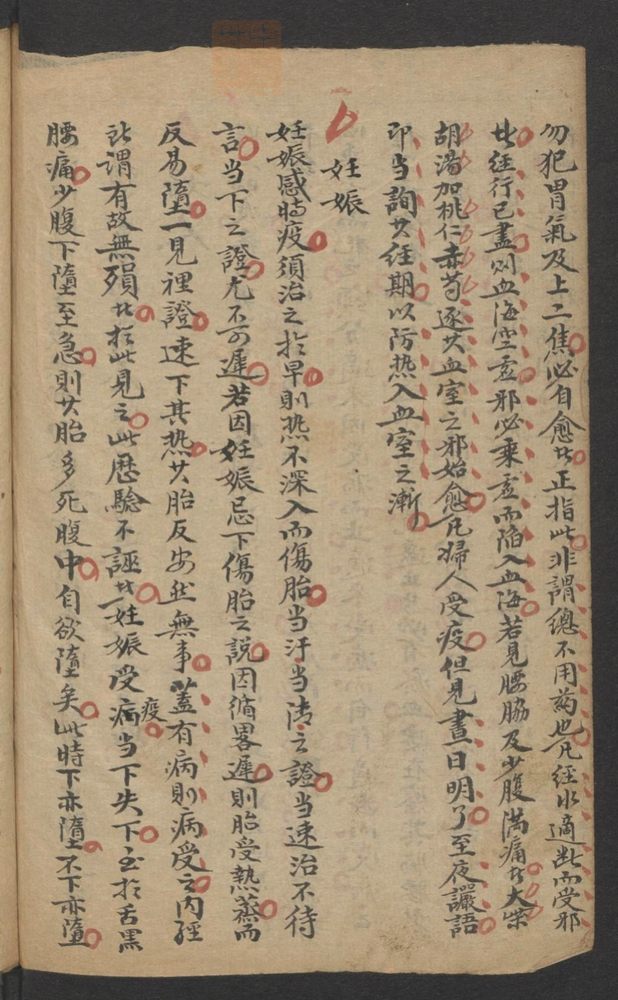 勿犯胃氣及上二焦必自愈者正指此非謂總不用药也凡经水適断而受邪
其经行已盡则血海空虚邪必乘虚而陷入血海若見腰脇及少腹满痛者大柴
胡湯加桃仁赤芍逐其血室之邪始愈凡婦人受疫但見晝日明了至夜讝語
即当詢其经期以防热入血室之漸
妊娠
妊娠感時疫須治之於早則热不深入而傷胎当汗当清之證当速治不待
言当下之證尤不可遲若因妊娠忌下傷胎之説因循畧遲則胎受熱蒸而
反易墮一見裡證速下其热其胎反安然無事蓋有病則病受之内經
所謂有故無殞者於此見之此歷驗不誣者妊娠受疫病当下失下至於舌黑
腰痛少腹下墮至急則其胎多死腹中自欲墮矣此時下亦墮不下亦墮